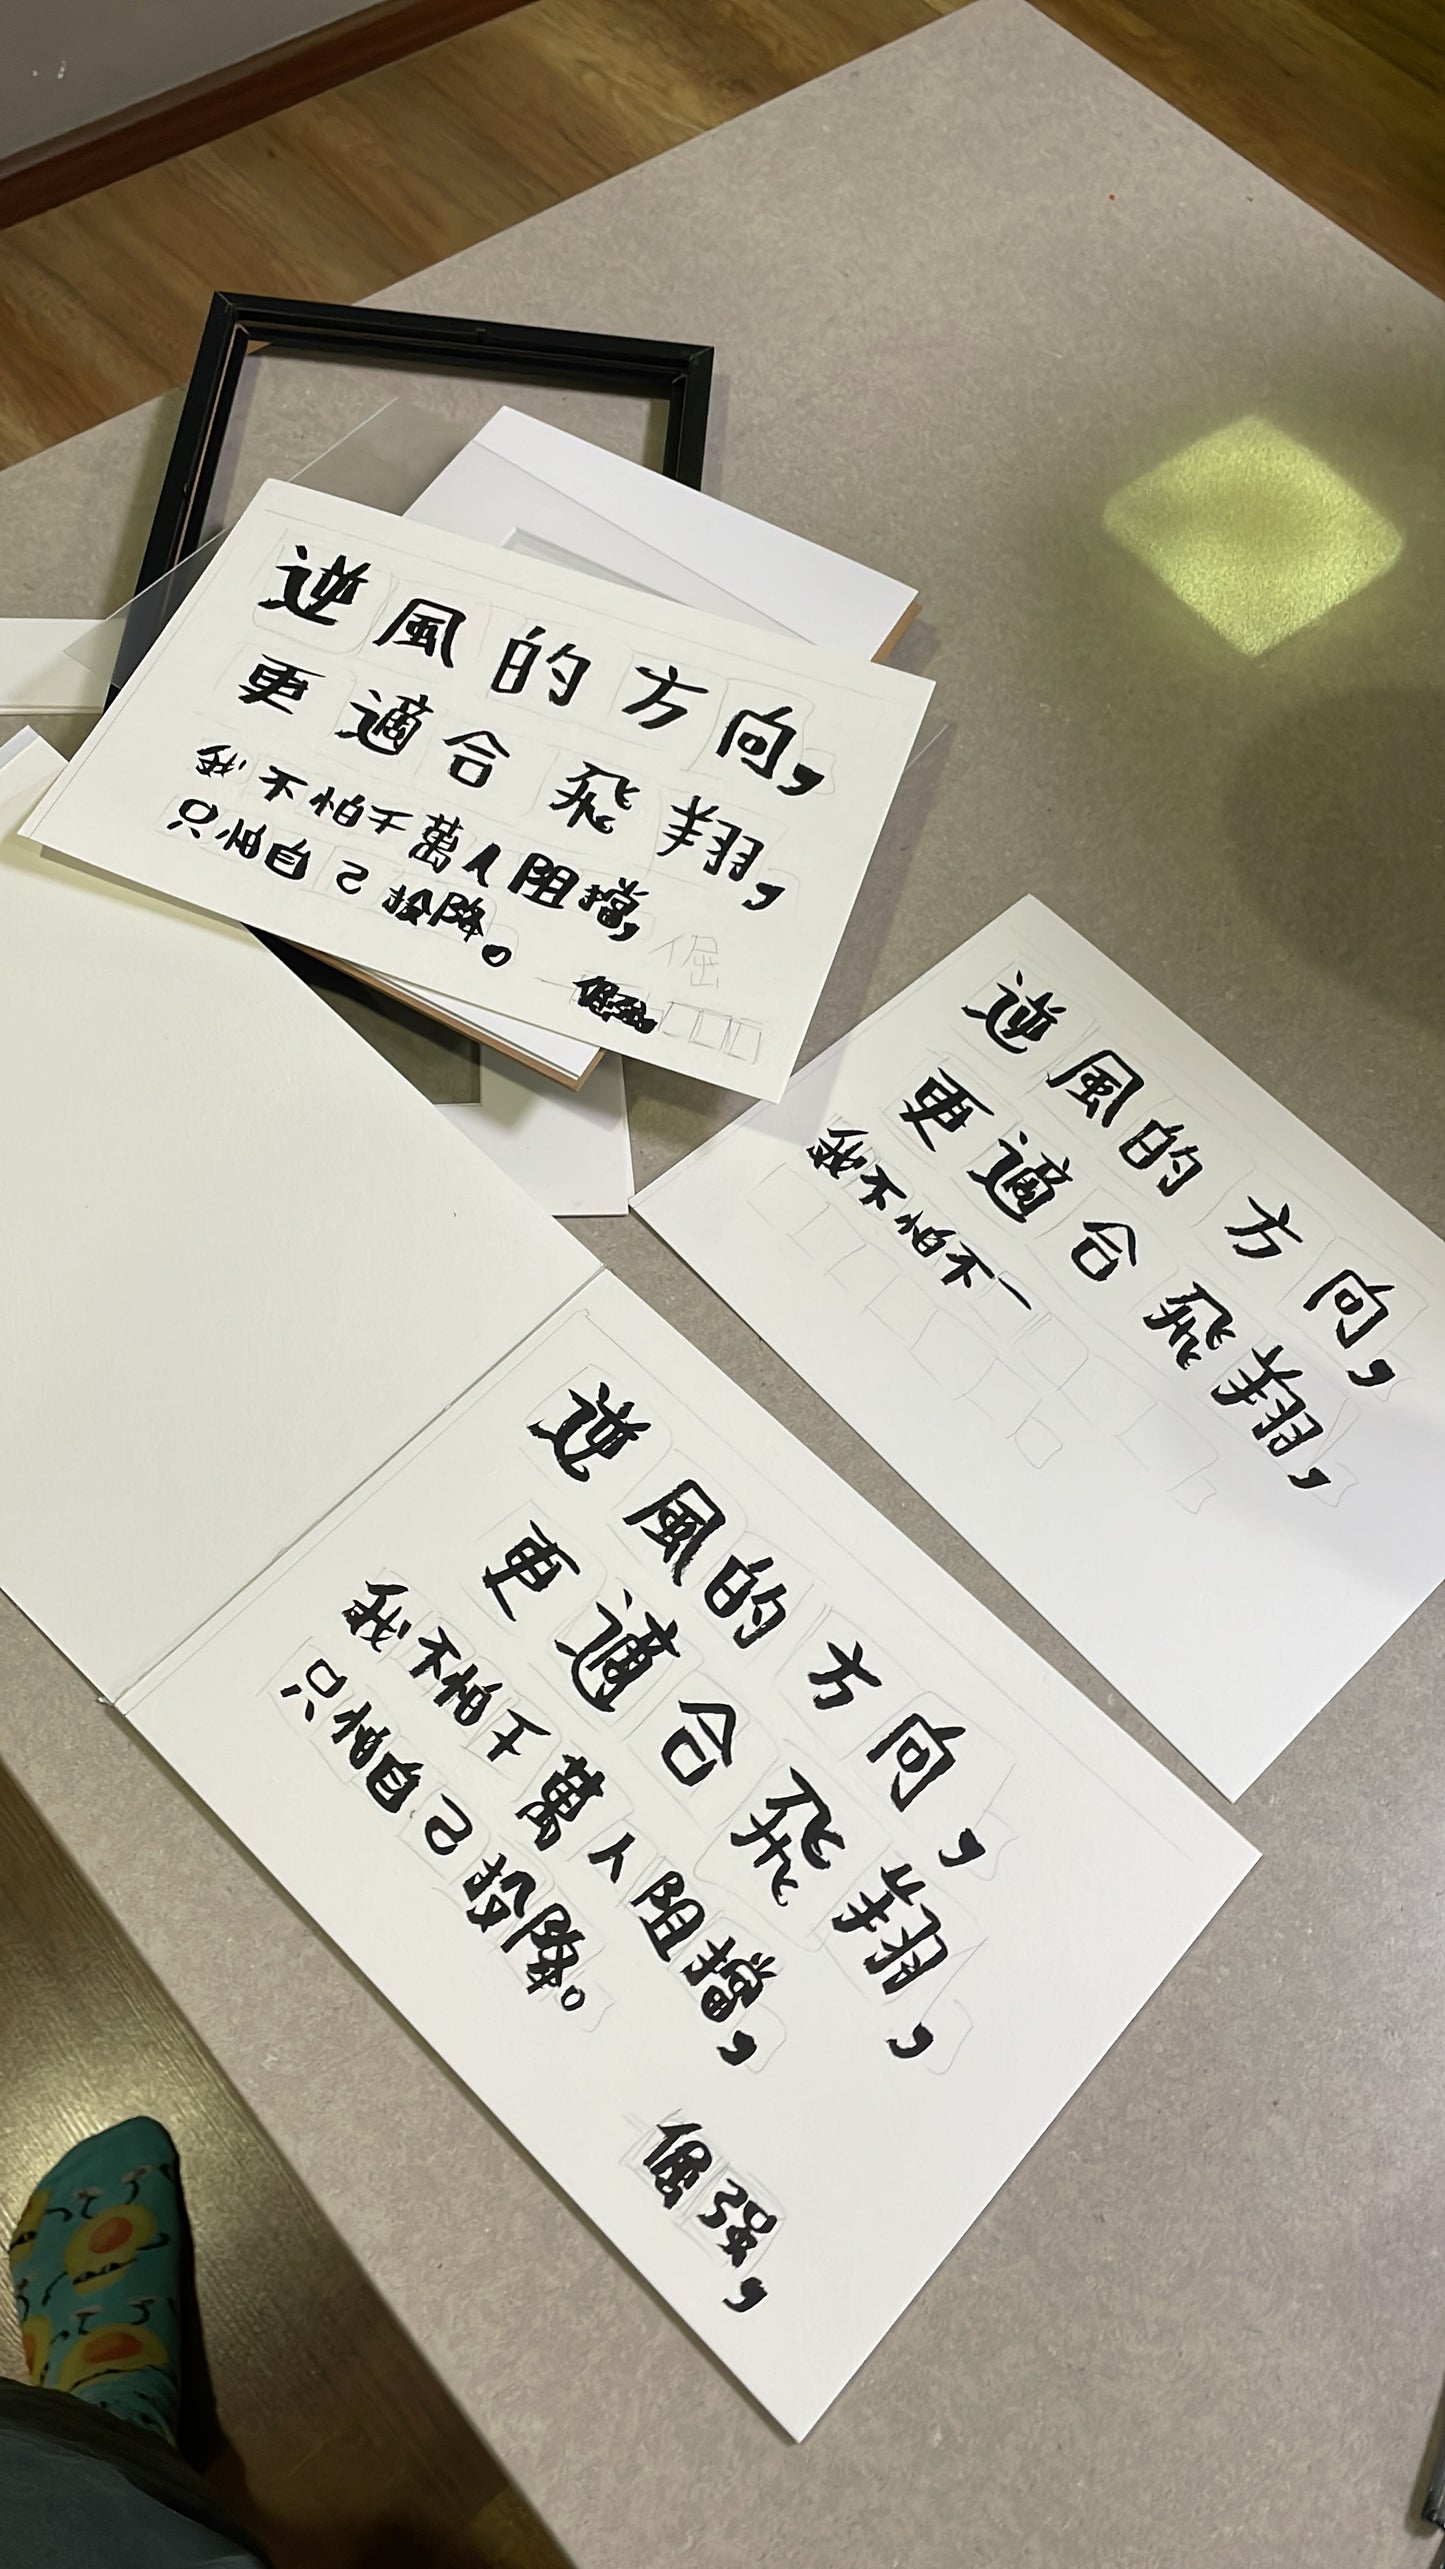 逆風的方向,
更適合飛翔,
我不怕千萬人阻擋,
只怕自己投降。
倔
倔强
逆風的方向,
更適合飛翔,
我不怕不一
逆風的方向,
更適合飛翔,
我不怕千萬人阻擋,
只怕自己投降。
倔强,